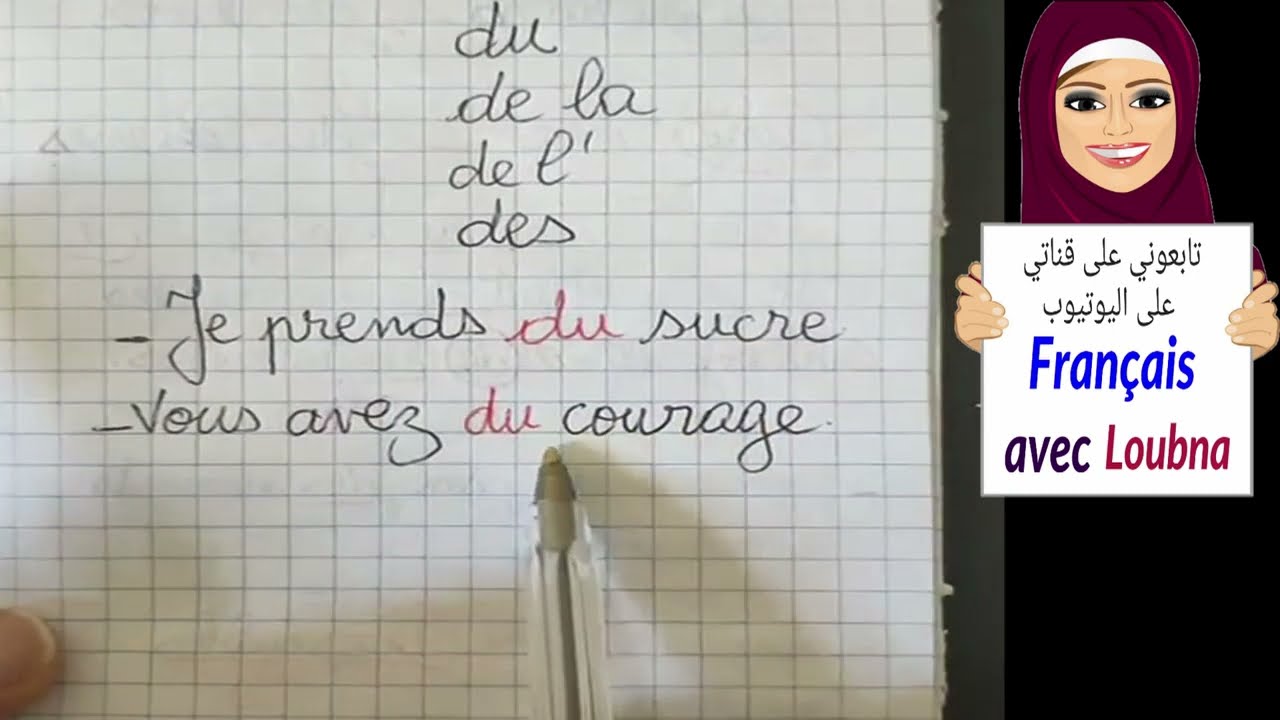 du
de la
de l'
des
- Je prends du sucre
- Vous avez du courage.
تابعوني على قناتي
على اليوتيوب
Français
avec Loubna